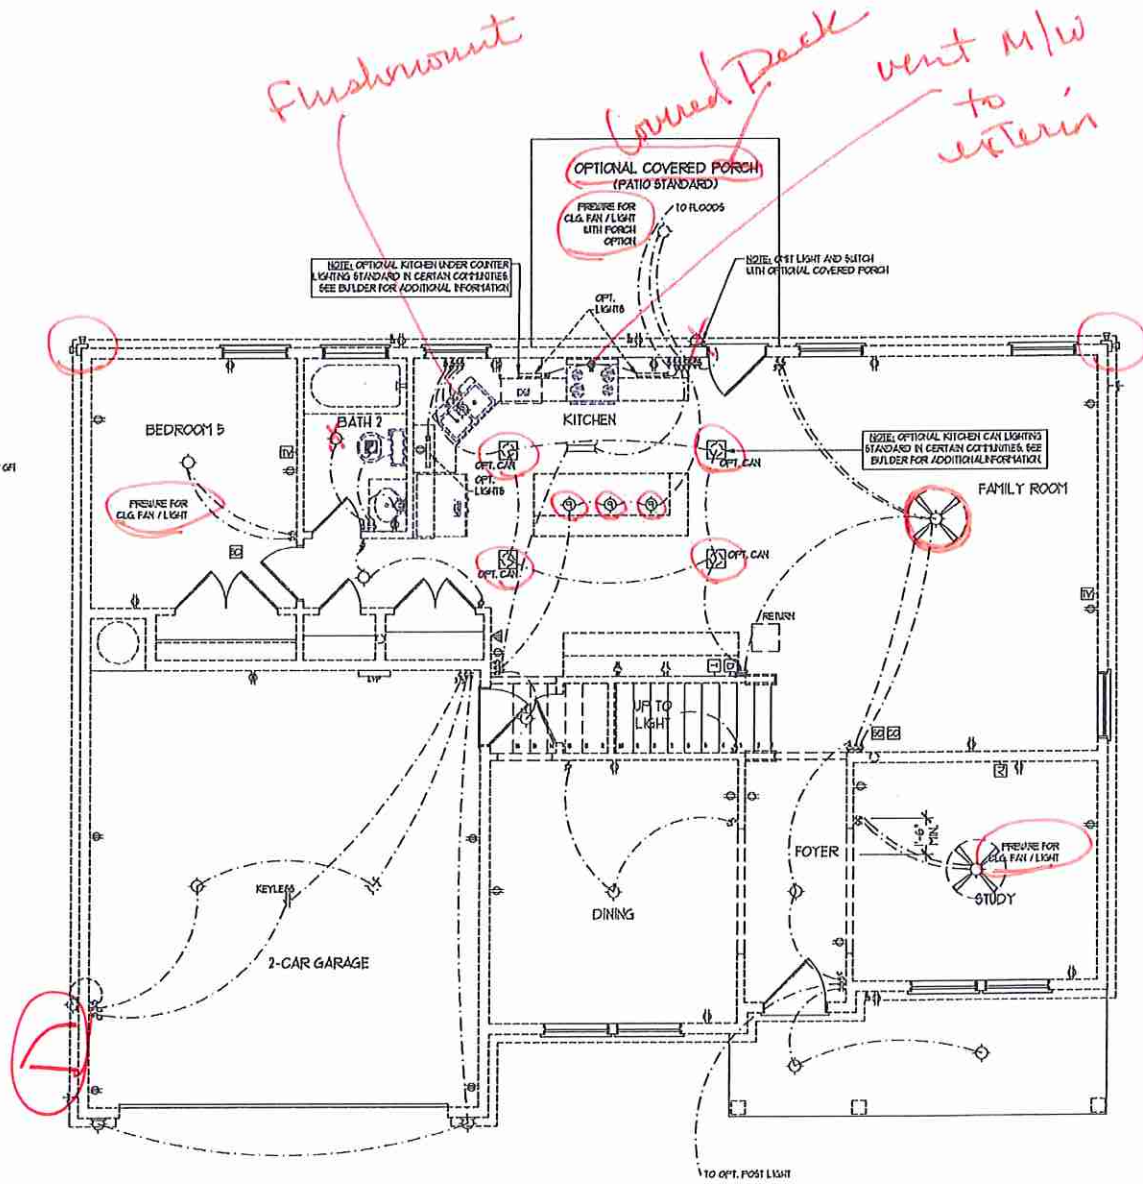 Flushmount
Covered Deck
vent M/W
to
OPTIONAL COVERED PORCH
(PATIO STANDARD)
PREWIRE FOR
CLG. FAN / LIGHT
WITH PORCH
OPTION
TO FLOODS
NOTE: OPTIONAL KITCHEN UNDER COUNTER
LIGHTING STANDARD IN CERTAIN COMMUNITIES.
SEE BUILDER FOR ADDITIONAL INFORMATION
NOTE: OMIT LIGHT AND SWITCH
WITH OPTIONAL COVERED PORCH
OPT.
LIGHTS
DW
KITCHEN
BEDROOM 5
BATH 2
TV
GFI
OPT. CAN
OPT. CAN
NOTE: OPTIONAL KITCHEN CAN LIGHTING
STANDARD IN CERTAIN COMMUNITIES. SEE
BUILDER FOR ADDITIONAL INFORMATION.
OPT.
LIGHTS
FAMILY ROOM
PREWIRE FOR
CLG. FAN / LIGHT
SC
OPT. CAN
OPT. CAN
TV
RETURN
UP TO
LIGHT
SC SC
1'-6"
MIN.
PREWIRE FOR
CLG. FAN / LIGHT
FOYER
STUDY
KEYLESS
DINING
2-CAR GARAGE
TO OPT. POST LIGHT